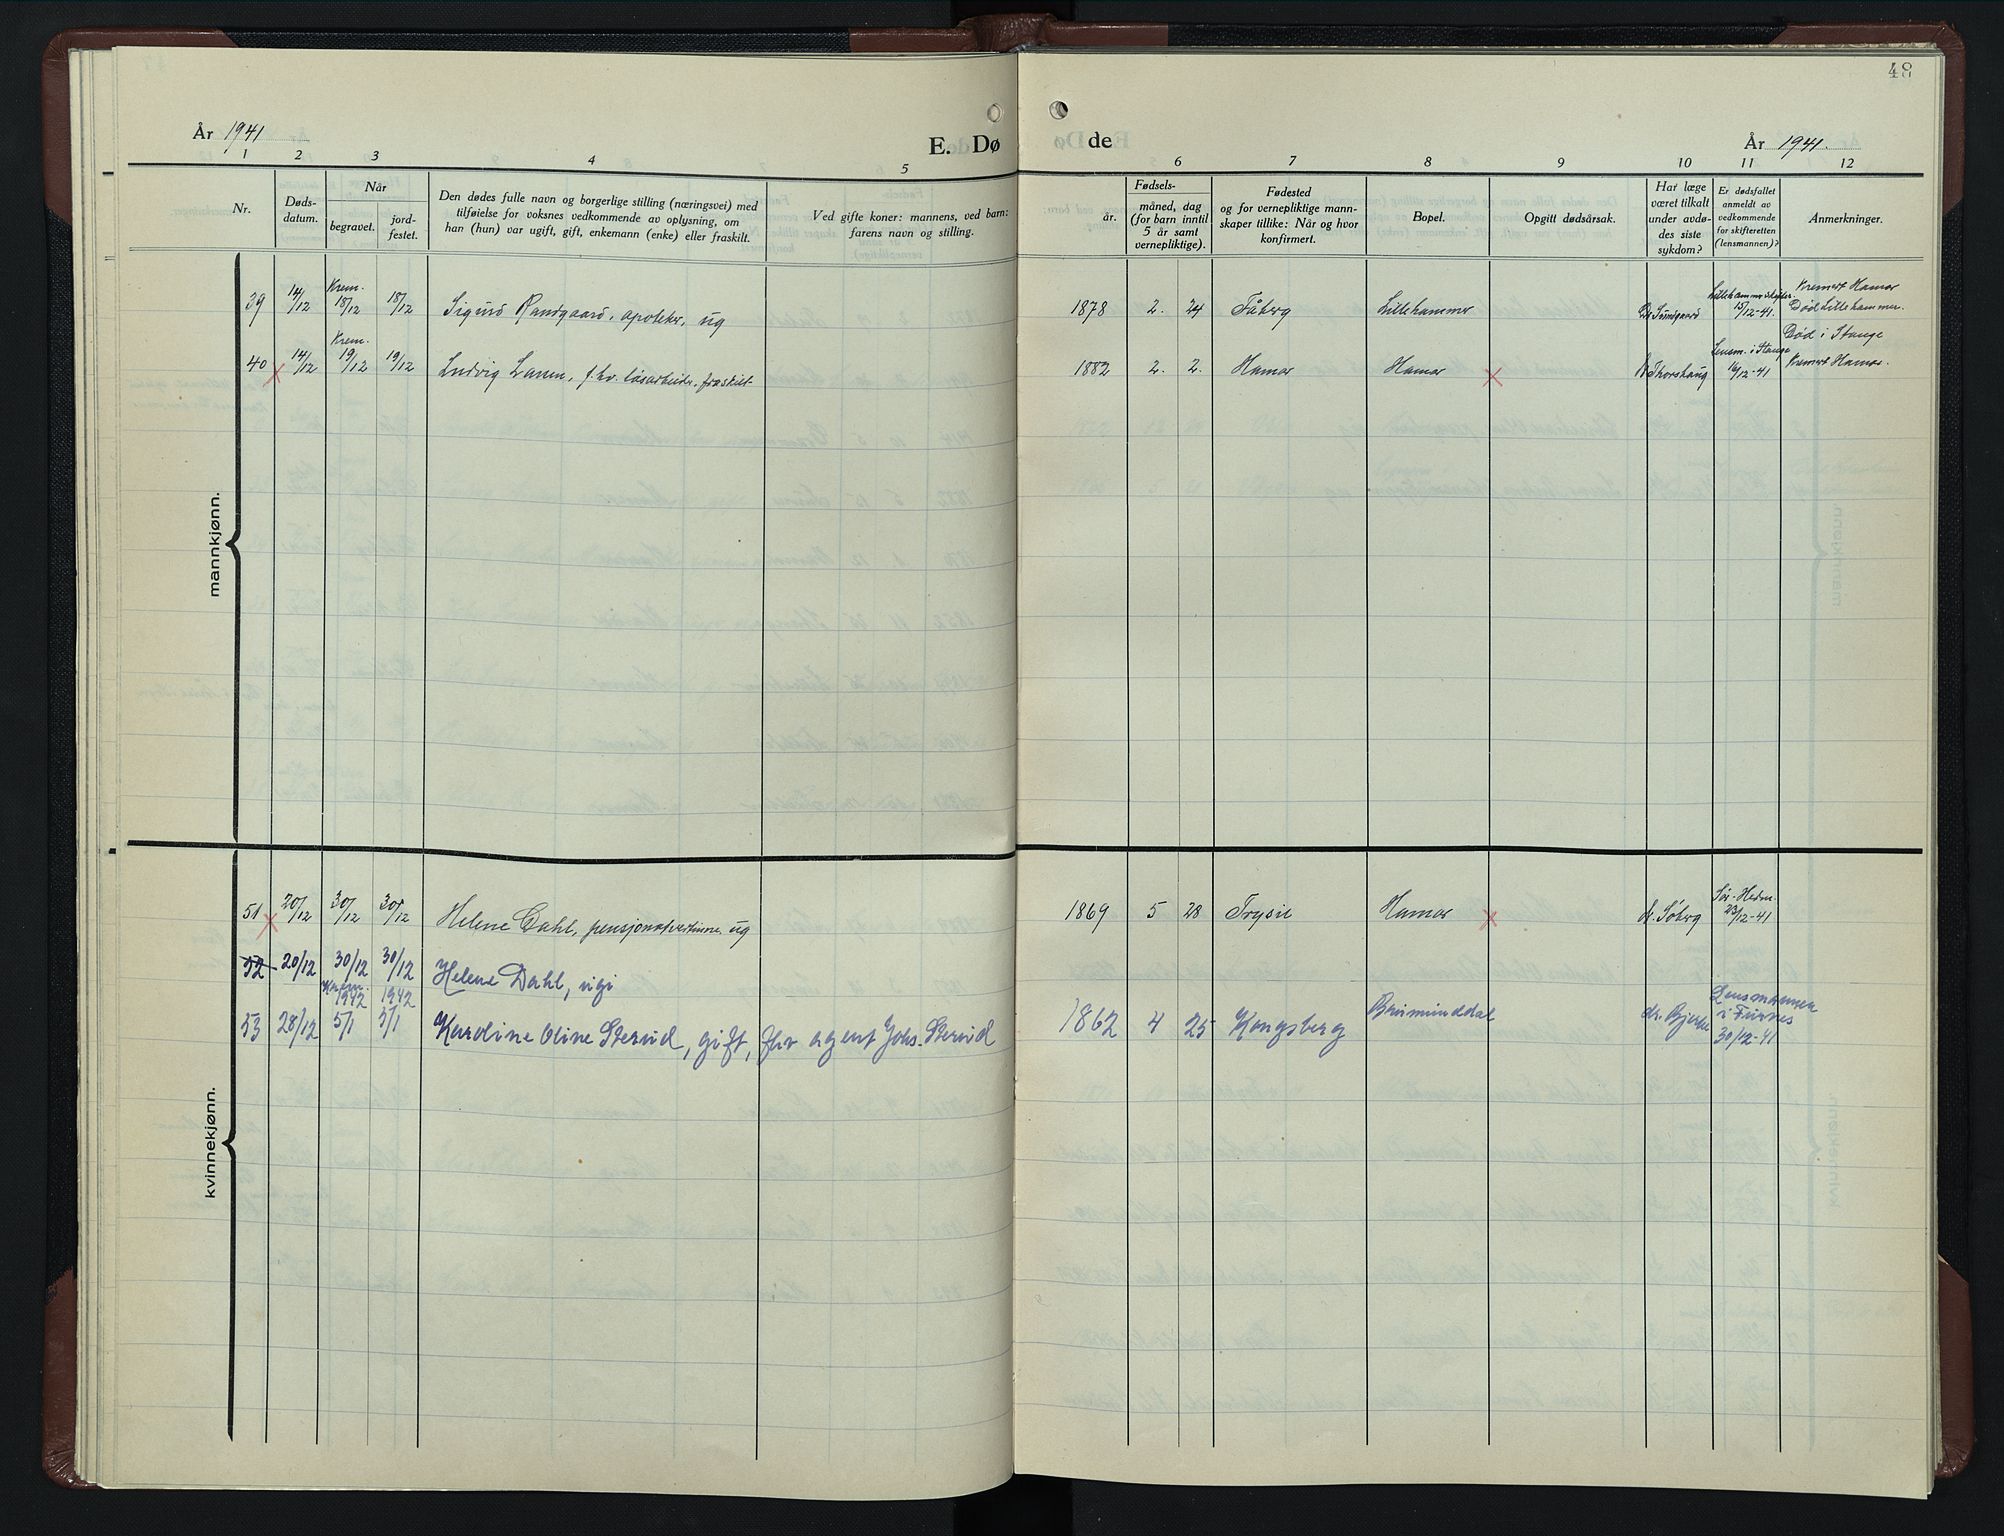 48
År 1941
E. Dø
de
År 1941.
1 2 3 4 5
6 7 8 9 10 11 12
Nr.
Døds-
datum.
Når
begravet.
jord-
festet.
Den dødes fulle navn og borgerlige stilling (næringsvei) med
tilføielse for voksnes vedkommende av oplysning, om
han (hun) var ugift, gift, enkemann (enke) eller fraskilt.
Ved gifte koner: mannens, ved barn:
farens navn og stilling.
år.
Fødsels-
måned, dag
(for barn inntil
5 år samt
vernepliktige).
Fødested
og for vernepliktige mann-
skaper tillike: Når og hvor
konfirmert.
Bopel.
Opgitt dødsårsak.
Har læge
været tilkalt
under avdø-
des siste
sykdom?
Er dødsfallet
anmeldt av
vedkommende
for skifteretten
(lensmannen)?
Anmerkninger.
mannkjønn.
Krem.
39 14/12 18/12 18/12 Sigurd Randgaard, apoteker, ug
1878 2. 24 Fåberg Lillehammer Dr Sundgaard 15/12-41.
Kremert Hamar
Død Lillehammer.
Krem.
40 x 14/12 19/12 19/12 Ludvig Larsen, f.hv. løsarbeider, fraskilt
1882 2. 2. Hamar Hamar x dr Thorshaug
Lensm. i Stange
16/12-41
Død i Stange
Kremert Hamar.
kvinnekjønn.
51 x 20/12 30/12 30/12 Helene Dahl, pensjonatvertinne. ug
1869 5 28 Trysil Hamar x dr. Söberg
Sør-Hedm.
23/12-41
52 20/12 30/12 30/12 Helene Dahl, ugi
1942 1942
53 28/12 5/1 5/1 Karoline Oline Sterud, gift, fhv agent Johs. Sterud
1862 4 25 Kongsberg Brumunddal dr. Bjerke
Lensmannen
i Furnes
30/12-41